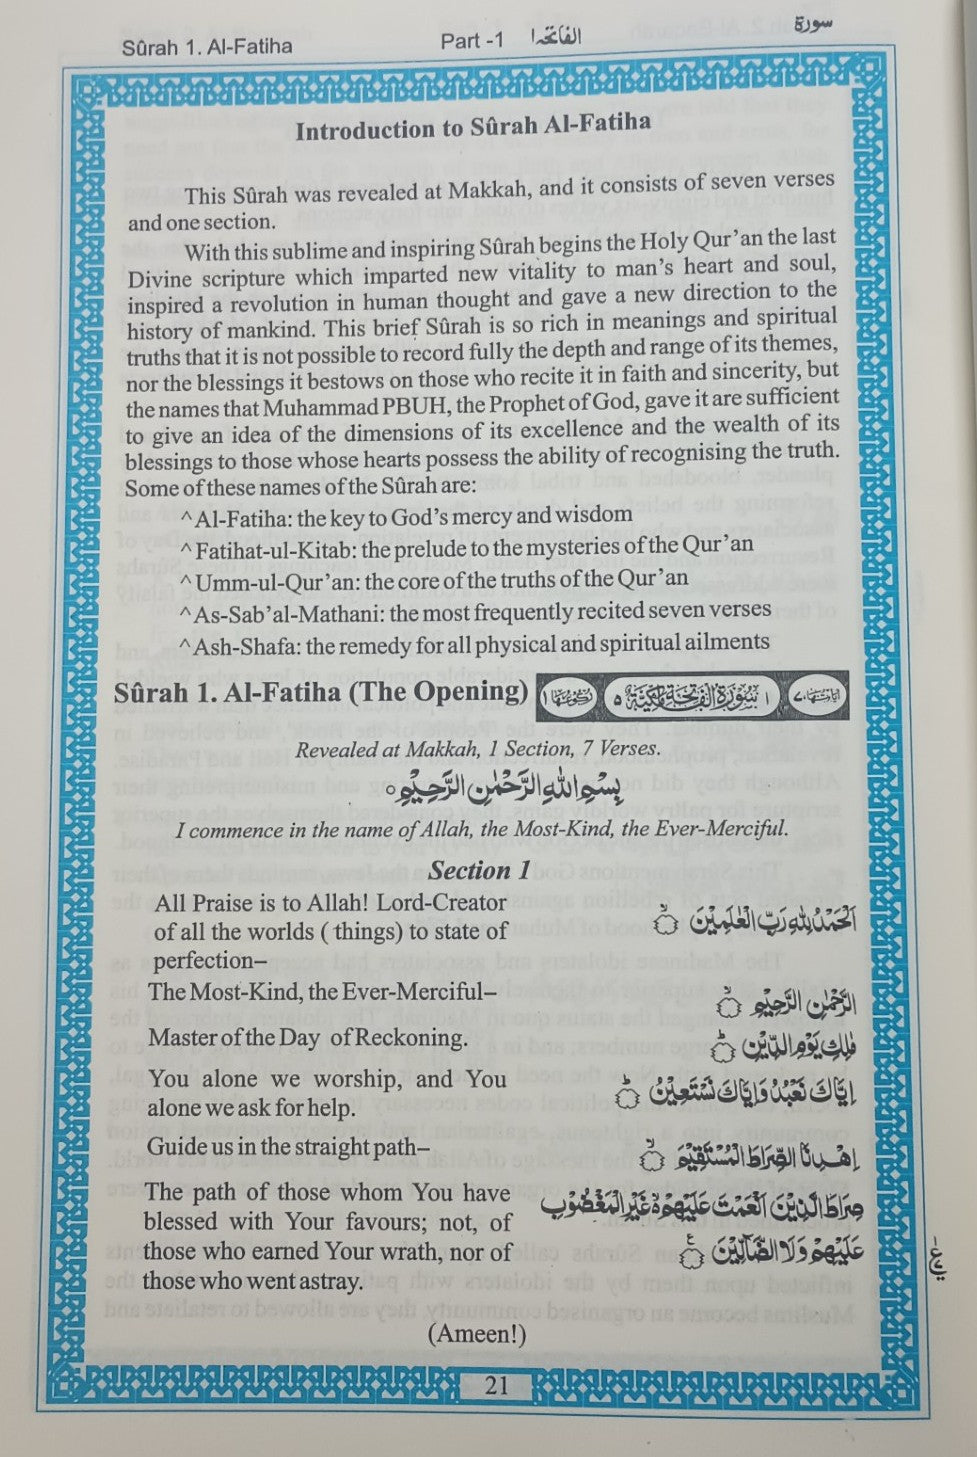 Sûrah 1. Al-Fatiha Part -1 الفاتحة ١ سورة
Introduction to Sûrah Al-Fatiha
This Sûrah was revealed at Makkah, and it consists of seven verses
and one section.
With this sublime and inspiring Sûrah begins the Holy Qur’an the last
Divine scripture which imparted new vitality to man’s heart and soul,
inspired a revolution in human thought and gave a new direction to the
history of mankind. This brief Sûrah is so rich in meanings and spiritual
truths that it is not possible to record fully the depth and range of its themes,
nor the blessings it bestows on those who recite it in faith and sincerity, but
the names that Muhammad PBUH, the Prophet of God, gave it are sufficient
to give an idea of the dimensions of its excellence and the wealth of its
blessings to those whose hearts possess the ability of recognising the truth.
Some of these names of the Sûrah are:
^ Al-Fatiha: the key to God’s mercy and wisdom
^ Fatihat-ul-Kitab: the prelude to the mysteries of the Qur’an
^ Umm-ul-Qur’an: the core of the truths of the Qur’an
^ As-Sab’al-Mathani: the most frequently recited seven verses
^ Ash-Shafa: the remedy for all physical and spiritual ailments
Sûrah 1. Al-Fatiha (The Opening) اٰیاتها ٧ ١ سُوْرَةُ الْفَاتِحَةِ مَكِّيَّةٌ ٥ رکوعها ١
Revealed at Makkah, 1 Section, 7 Verses.
بِسْمِ اللّٰهِ الرَّحْمٰنِ الرَّحِيْمِ ○
I commence in the name of Allah, the Most-Kind, the Ever-Merciful.
Section 1
All Praise is to Allah! Lord-Creator
of all the worlds ( things) to state of
perfection–
اَلْحَمْدُ لِلّٰهِ رَبِّ الْعٰلَمِيْنَ ۙ
The Most-Kind, the Ever-Merciful–
الرَّحْمٰنِ الرَّحِيْمِ ۙ
Master of the Day of Reckoning.
مٰلِكِ يَوْمِ الدِّيْنِ ؕ
You alone we worship, and You
alone we ask for help.
اِيَّاكَ نَعْبُدُ وَاِيَّاكَ نَسْتَعِيْنُ ؕ
Guide us in the straight path–
اِهْدِنَا الصِّرَاطَ الْمُسْتَقِيْمَ ۙ
The path of those whom You have
blessed with Your favours; not, of
those who earned Your wrath, nor of
those who went astray.
صِرَاطَ الَّذِيْنَ اَنْعَمْتَ عَلَيْهِمْ ۙ غَيْرِ الْمَغْضُوْبِ
عَلَيْهِمْ وَلَا الضَّآلِّيْنَ ۧ
(Ameen!)
21